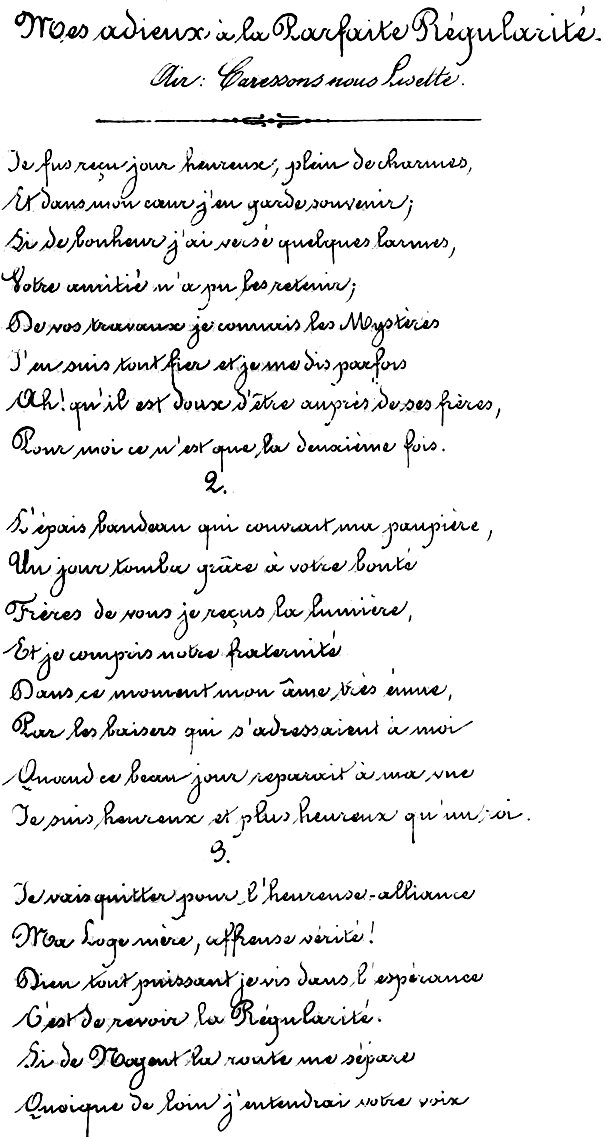 Mes adieux à la Parfaite Régularité.
Air: Caressons nous Lisette.
Je fus reçu jour heureux, plein de charmes,
Et dans mon cœur j'en garde souvenir;
Si de bonheur j'ai versé quelques larmes,
Votre amitié n'a pu les retenir;
De vos travaux je connais les Mystères
J'en suis tout fier et je me dis parfois
Ah! qu'il est doux d'être auprès de ses frères,
Pour moi ce n'est que la deuxième fois.
2.
L'épais bandeau qui couvrait ma paupière,
Un jour tomba grâce à votre bonté
Frères de vous je reçus la lumière,
Et je compris notre fraternité
Dans ce moment mon âme très émue,
Par les baisers qui s'adressaient à moi
Quand ce beau jour reparait à ma vue
Je suis heureux et plus heureux qu'un roi.
3.
Je vais quitter pour l'heureuse-alliance
Ma Loge mère, affreuse vérité!
Dieu tout puissant je vis dans l'espérance
C'est de revoir la Régularité.
Si de Nogent la route me sépare
Quoique de loin j'entendrai votre voix